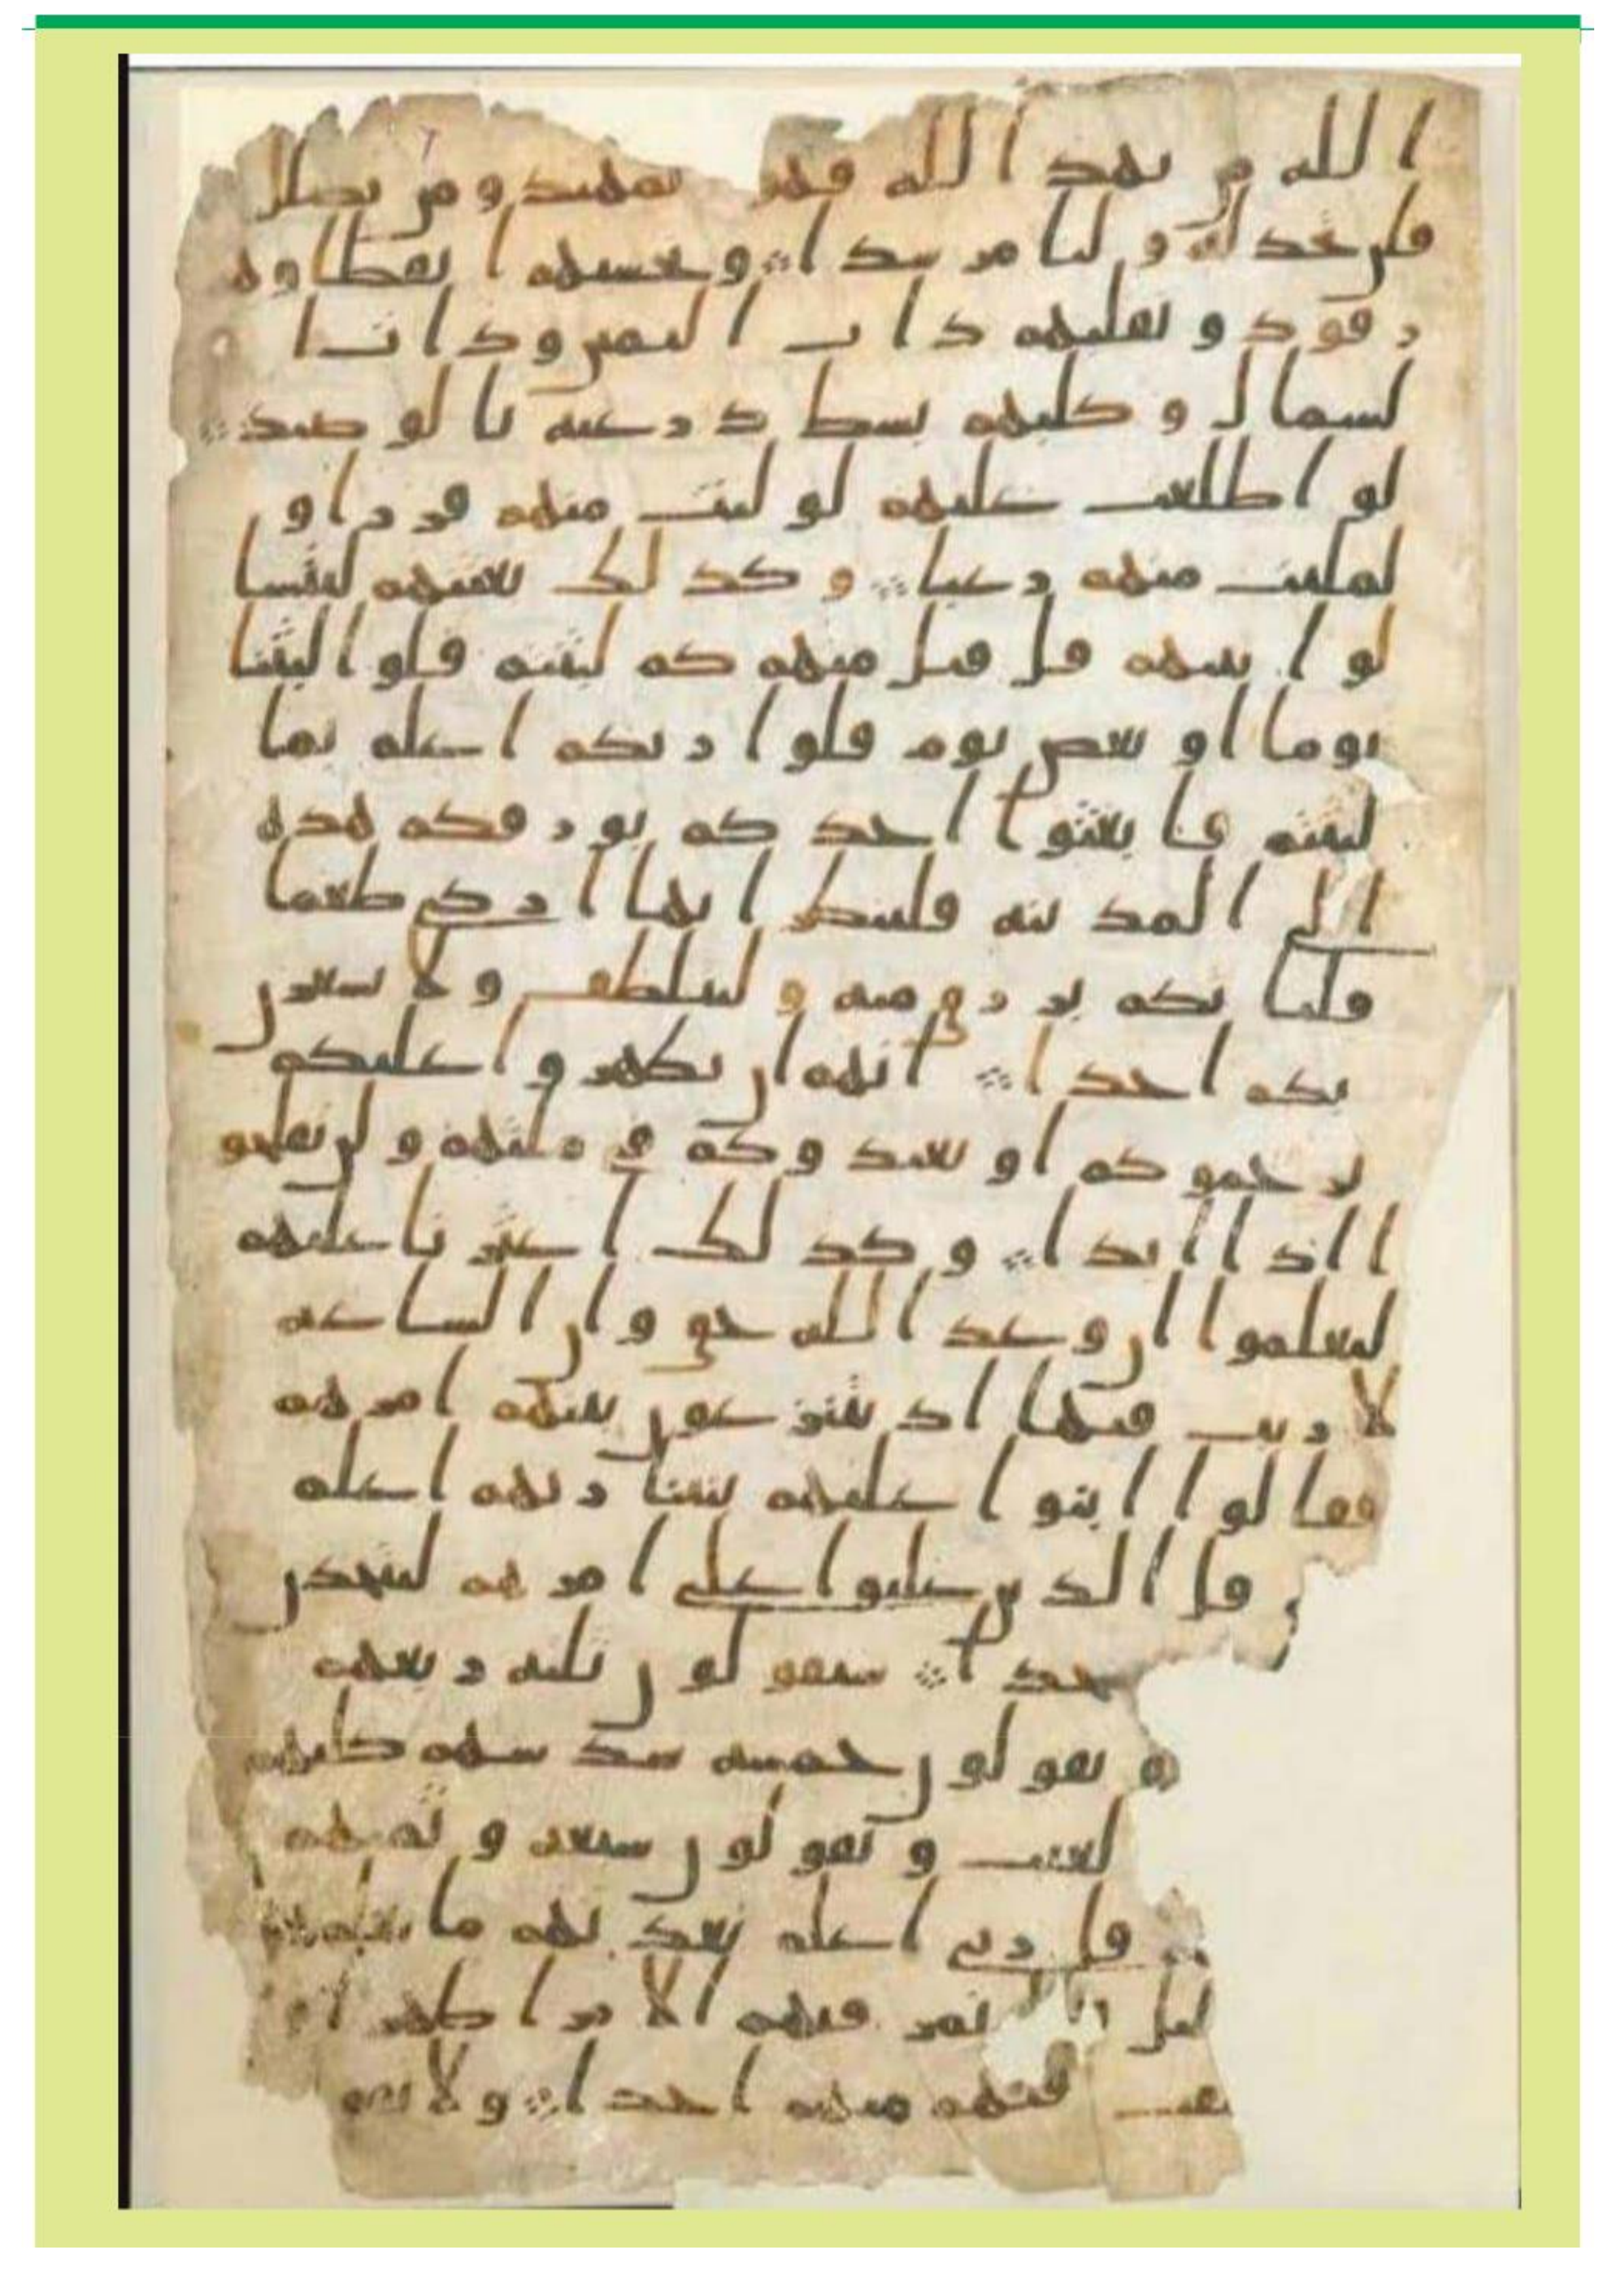 الله من يهد الله فهو المهتد ومن يضلل
فلن تجد له وليا مرشدا وتحسبهم ايقظا وهم
رقود ونقلبهم ذات اليمين وذات ا
لشمال وكلبهم بسط ذرعيه بالوصيد
لو اطلعت عليهم لوليت منهم فررا و
لملئت منهم رعبا وكذلك بعثنهم ليتسا
لوا بينهم قل قئل منهم كم لبثتم قلوا لبثنا
يوما او بعض يوم قلوا ربكم اعلم بما
لبثتم فابعثوا احدكم بورقكم هذه
الى المدينة فلينظر ايها ازكى طعما
فلياتكم برزق منه وليتلطف ولا يشعرن
بكم احدا انهم ان يظهروا عليكم
يرجموكم او يعيدوكم في ملتهم ولن تفلحو
ا اذا ابدا وكذلك اعثرنا عليهم
ليعلموا ان وعد الله حق وان الساعة
لا ريب فيها اذ يتنزعون بينهم امرهم
فقالوا ابنوا عليهم بنينا ربهم اعلم
قل الذين غلبوا على امرهم لنتخذن
سيقولون ثلثة ربعهم
ويقولون خمسة سدسهم كلبهم
لغيب ويقولون سبعة وثمنهم
قل ربي اعلم بعدتهم ما يعلمهم
تمر فيهم الا مرا ظهرا
منهم احدا ولا تقو